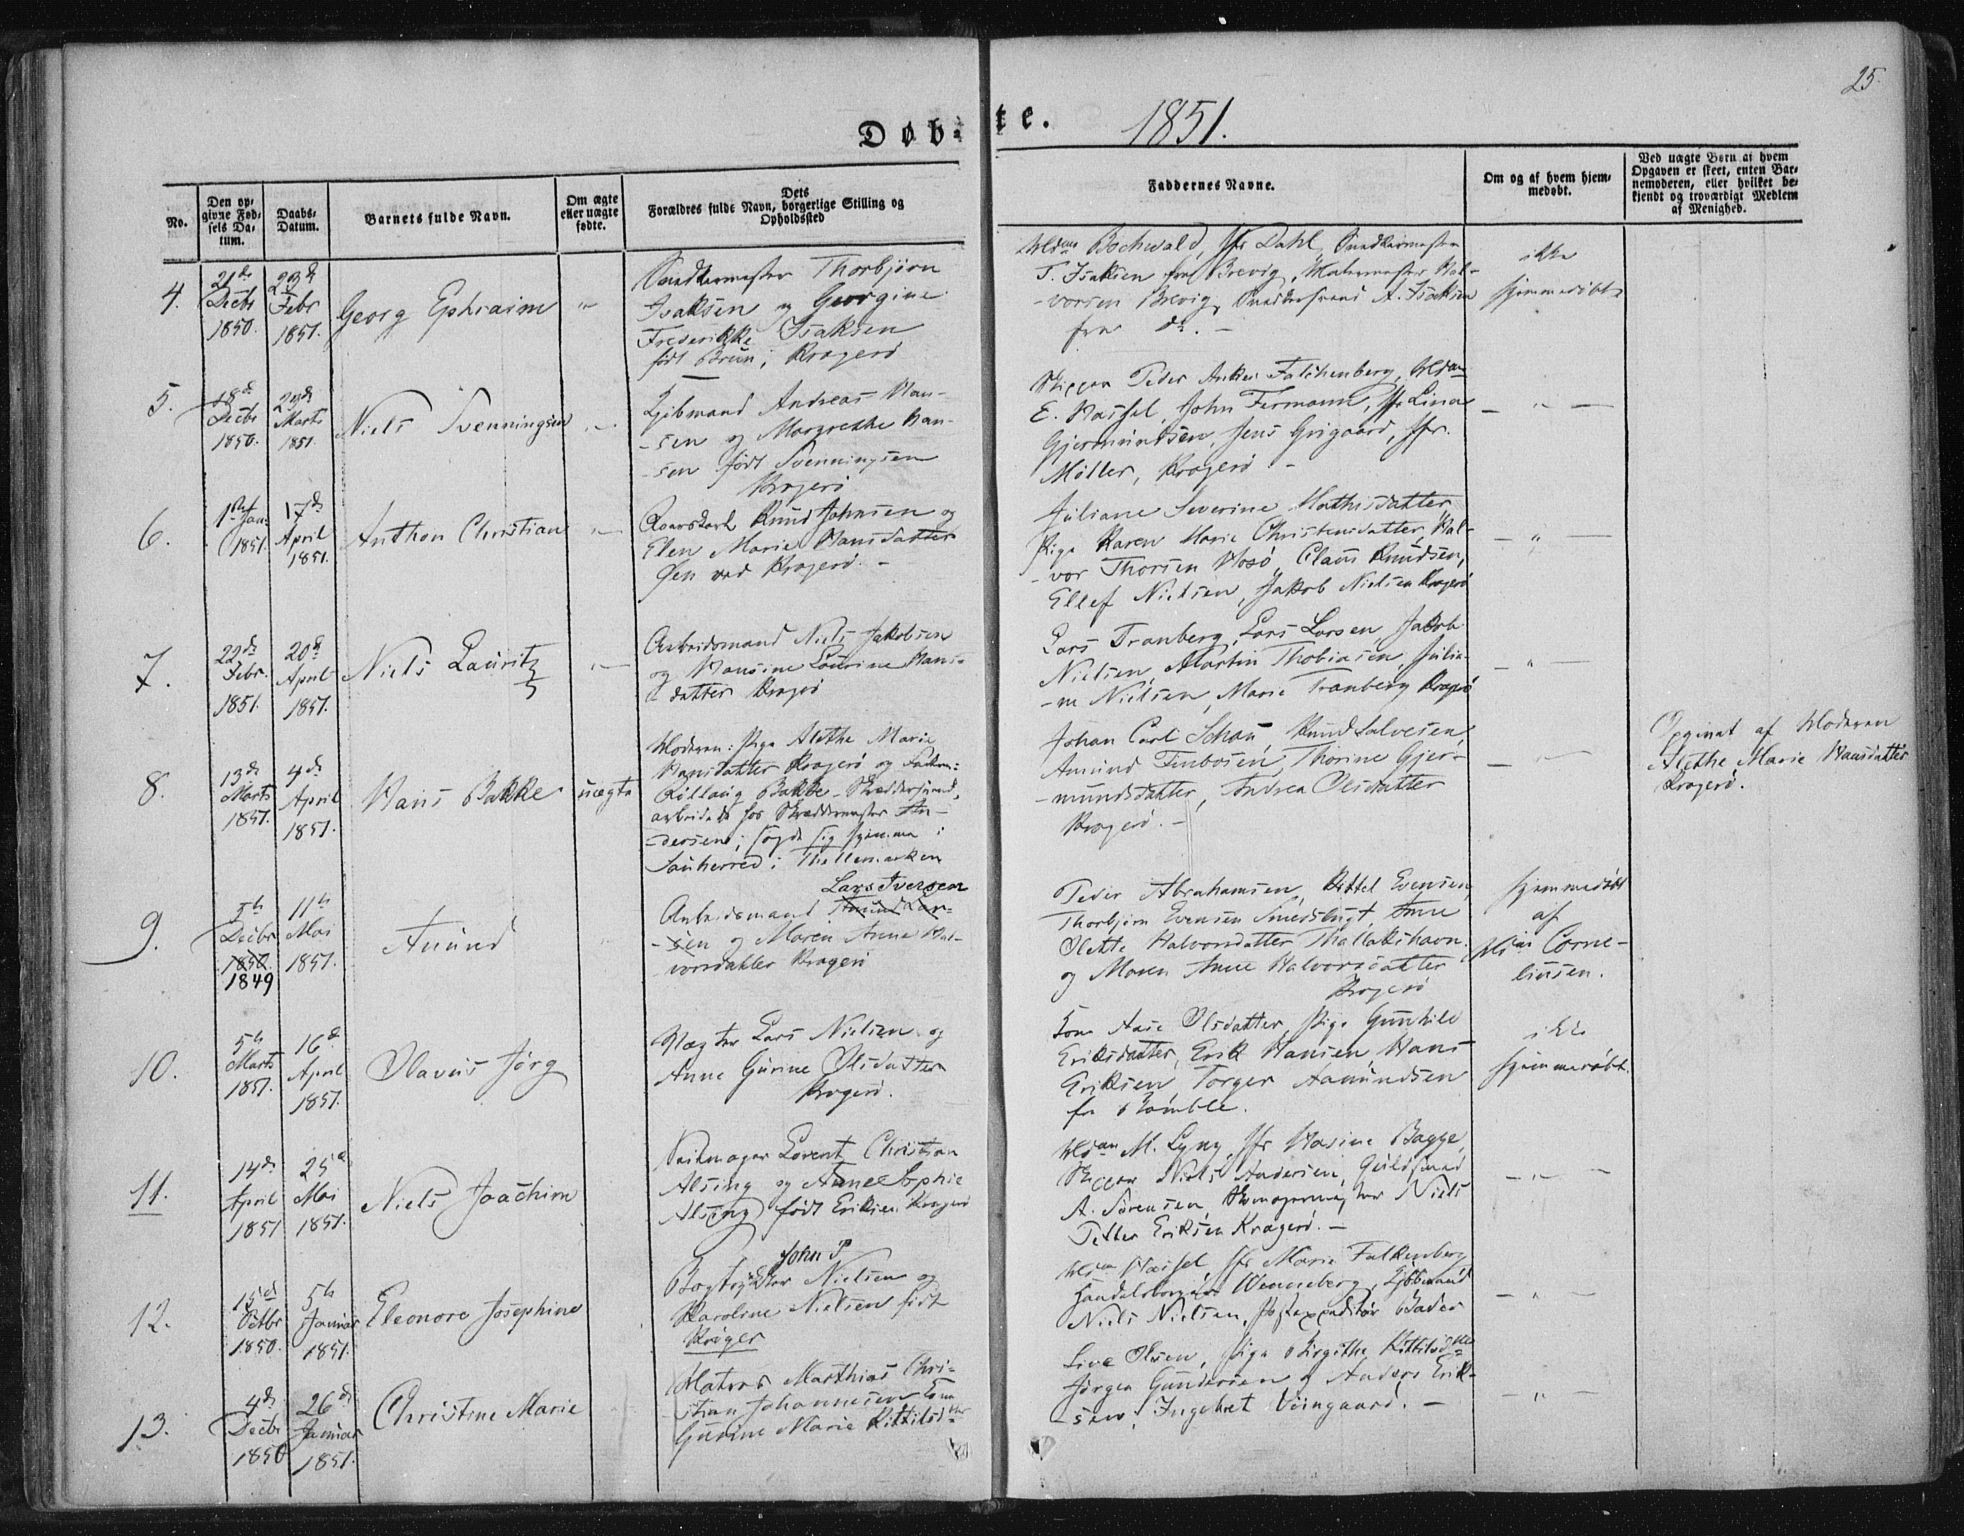 25.
Døb-
te.
1851.
No.
Den op-
givne Fød-
sels Da-
tum.
Daabs-
Datum.
Barnets fulde Navn.
Om ægte
eller uægte
fødte.
Dets
Forældres fulde Navn, borgerlige Stilling og
Opholdssted
Faddernes Navne.
Om og af hvem hjem-
medøbt.
Ved uægte Børn af hvem
Opgaven er skeet, enten Bar-
nemoderen, eller hvilket be-
kjendt og troværdigt Medlem
af Menighed.
4.
21de
Decbr
1850.
23d
Febr
1851.
Georg Ephraim
"
Snedkermester Thorbjørn
Isaksen og Georgine
Frederikke Isaksen
født Brun; Kragerø
Mdme Bochwald, Jfr Dahl, Snedkermester
T. Isaksen fra Brevig, Malermester Hal-
-vorsen Brevig, Snedkersvend A. Isaksen
fra do. -
ikke
hjemmedøbt
5.
18de
Decbr
1850.
23de
Marts
1851.
Niels Svenningsen
"
Andreas Han-
-sen og Margrethe Han-
-sen født Svenningsen
Kragerø
Skipper Peder Anker Falchenberg, Mdme
E. Hassel, John Fermann, Jfr Lina
Gjermundsen, Jens Grigaard, Jfr.
Møller, Kragerø -
- " -
6.
1ste Jan:
1851.
17de
April
1851.
Anthon Christian
"
Knud Johnsen og
Elen Marie Hansdatter
Øen ved Kragerø. -
Juliane Severine Mathisdatter,
Pige Karen Marie Christensdatter, Hal-
-vor Thorsen Claus Knudsen,
Ellef Nielsen, Jakob Nielsen Kragerø
- " -
7.
22de
Febr.
1851.
20de
April
1851.
Niels Lauritz
"
Arbeidsmand Niels Jakobsen
og Hansine Laurine Hans-
datter Kragerø
Lars Tranberg, Lars Larsen, Jakob
Nielsen, Martin Thobiasen, Julia-
-ne Nielsen, Marie Tranberg Kragerø
- " -
8.
13de
Marts
1851.
4de
April
1851.
Hans Bakke
uægte
Moderen: Pige Alethe Marie
Hansdatter Kragerø og Faderen:
Bakke - Skræddersvend,
arbeidede hos Skræddermester An-
-dersen; sagde sig hjemme i
Sauherred i Thellemarken
Johan Carl Schau, Knud Salvesen,
Amund Finbosen, Thorine Gjer-
-mundsdatter, Andrea Olsdatter
Kragerø. -
- " -
Opgivet af Moderen
Alethe Marie Hansdatter
Kragerø.
9.
5te
Decbr
1850.
1849
11te
Mai
1851.
Amund
Lars Iversen
Arbeidsmand Amund Lar-
-sen og Maren Anne Hal-
vorsdatter Kragerø
Peder Abrahamsen, Kittel Evensen,
Thorbjørn Evensen Smedsbugt, Anne
Olette Halvorsdatter Thallakshavn
og Maren Anne Halvorsdatter
Kragerø
hjemmedøbt
af
Corne-
liusen.
10.
5te
Marts
1851.
16de
April
1851.
Olavus Jørg
Vægter Lars Nielsen og
Anne Gurine Olsdatter
Kragerø.
Kone Aase Olsdatter, Pige Gunhild
Eriksdatter, Erik Hansen, Hans
Eriksen, Torger Aamundsen
fra Bamble.
ikke
hjemmedøbt.
11.
14de
April
1851
25de
Mai
1851.
Niels Joachim
Seilmager Lorent Christian
Alsing og Anne Sophie
Alsing født Eriksen Kragerø
Mdme M. Lyng, Jfr Hasine Bagge,
Skipper Niels Andersen, Guldsmed
A. Sørensen, Skomagermester Niels
Petter Eriksen Kragerø. -
- " -
12.
15de
Octbr
1850.
5te
Januar
1851.
Eleonore Josephine
John P
Bogtrykker Nielsen og
Karoline Nielsen født
Krøger
Mdme Hassel, Jfr Marie Falkenberg,
Handelsborger Wenneberg,
Niels Nielsen, Postexpeditør Bader
- " -
13.
4de
Decbr
1850
26de
Januar
1851.
Christine Marie
Matros Matthias Chri-
-stian Johannesen Kone
Gurine Marie Kittilsdtter
Live Olsen, Pige Birgithe Kittilsdtter
Jørgen Gundersen og Anders Erik-
-sen, Ingebret Viingaard. -
- " -